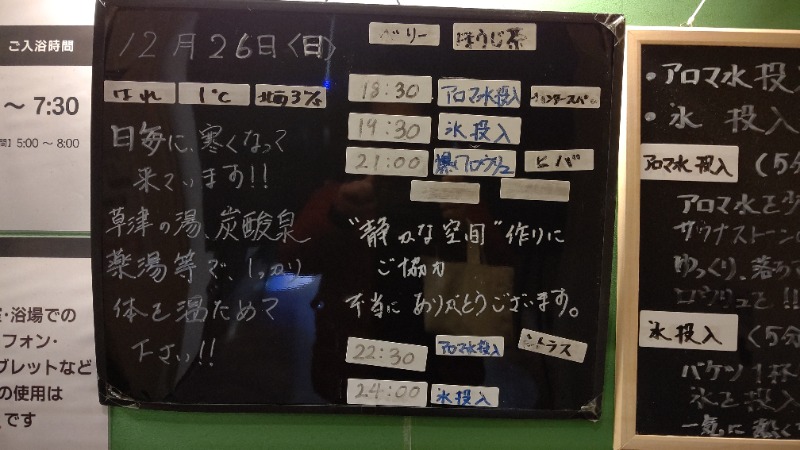 ご入浴時間
～ 7:30
間】5:00 ～ 8:00
・浴場での
フォン・
ブレットなど
の使用は
です
12月26日〈日〉
はれ 1℃ 北西3%
日毎に、寒くなって
来ています!!
草津の湯、炭酸泉
薬湯等で、しっかり
体を温ためて
下さい!!
ベリー ほうじ茶
18:30 アロマ水投入
19:30 氷投入
21:00 爆アロウリュ ヒバ
"静かな空間"作りに
ご協力
本当に ありがとうございます。
22:30 アロマ水投入 シトラス
24:00 氷投入
・アロマ水投入
・氷 投入
アロマ水投入 (5分
アロマ水を少
サウナストーン
ゆっくり、落
ロウリュを!!
氷投入 (5分
バケツ1杯
氷を投入
一気に熱く